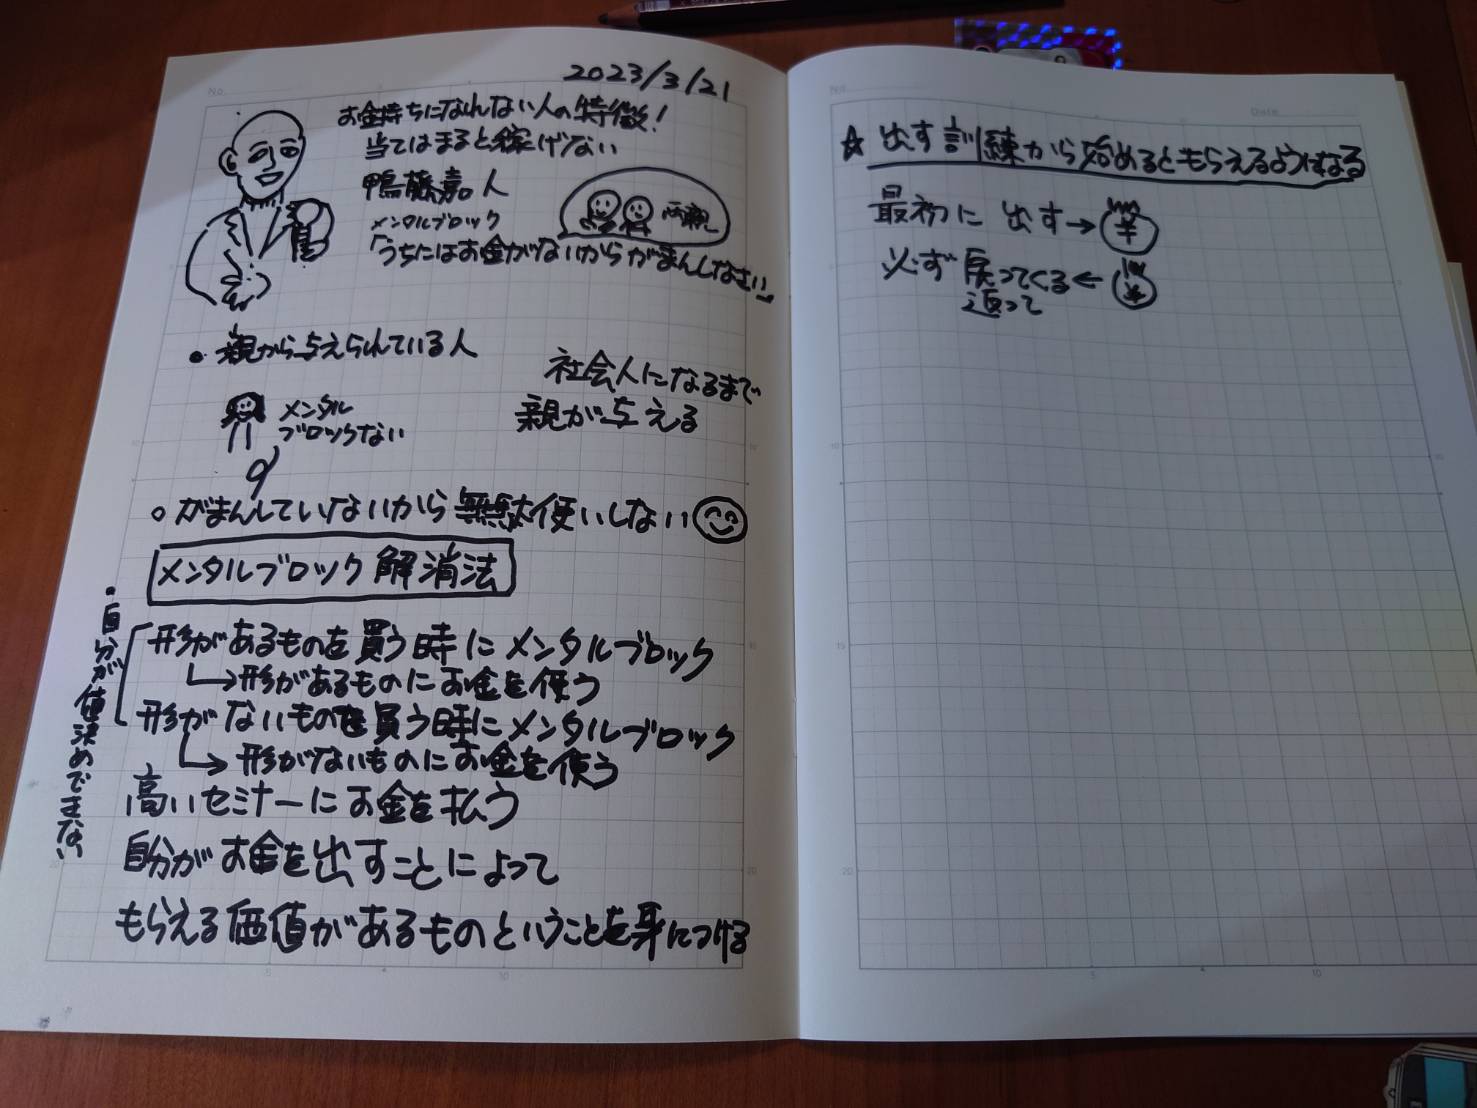 2023/3/21
お金持ちになれない人の特徴!
当てはまると稼げない
鴨藤嘉人
メンタルブロック
両親
「うちにはお金がないからがまんしなさい」
・親から与えられている人
社会人になるまで
親が与える
メンタル
ブロックない
○がまんしていないから無駄使いしない
メンタルブロック解消法
・自分が値決めできない
形があるものを買う時にメンタルブロック
→形があるものにお金を使う
形がないものを買う時にメンタルブロック
→形がないものにお金を使う
高いセミナーにお金を払う
自分がお金を出すことによって
もらえる価値があるものということを身につける
No.
Date
☆出す訓練から始めるともらえるようになる
最初に出す→
必ず戻ってくる←
返って